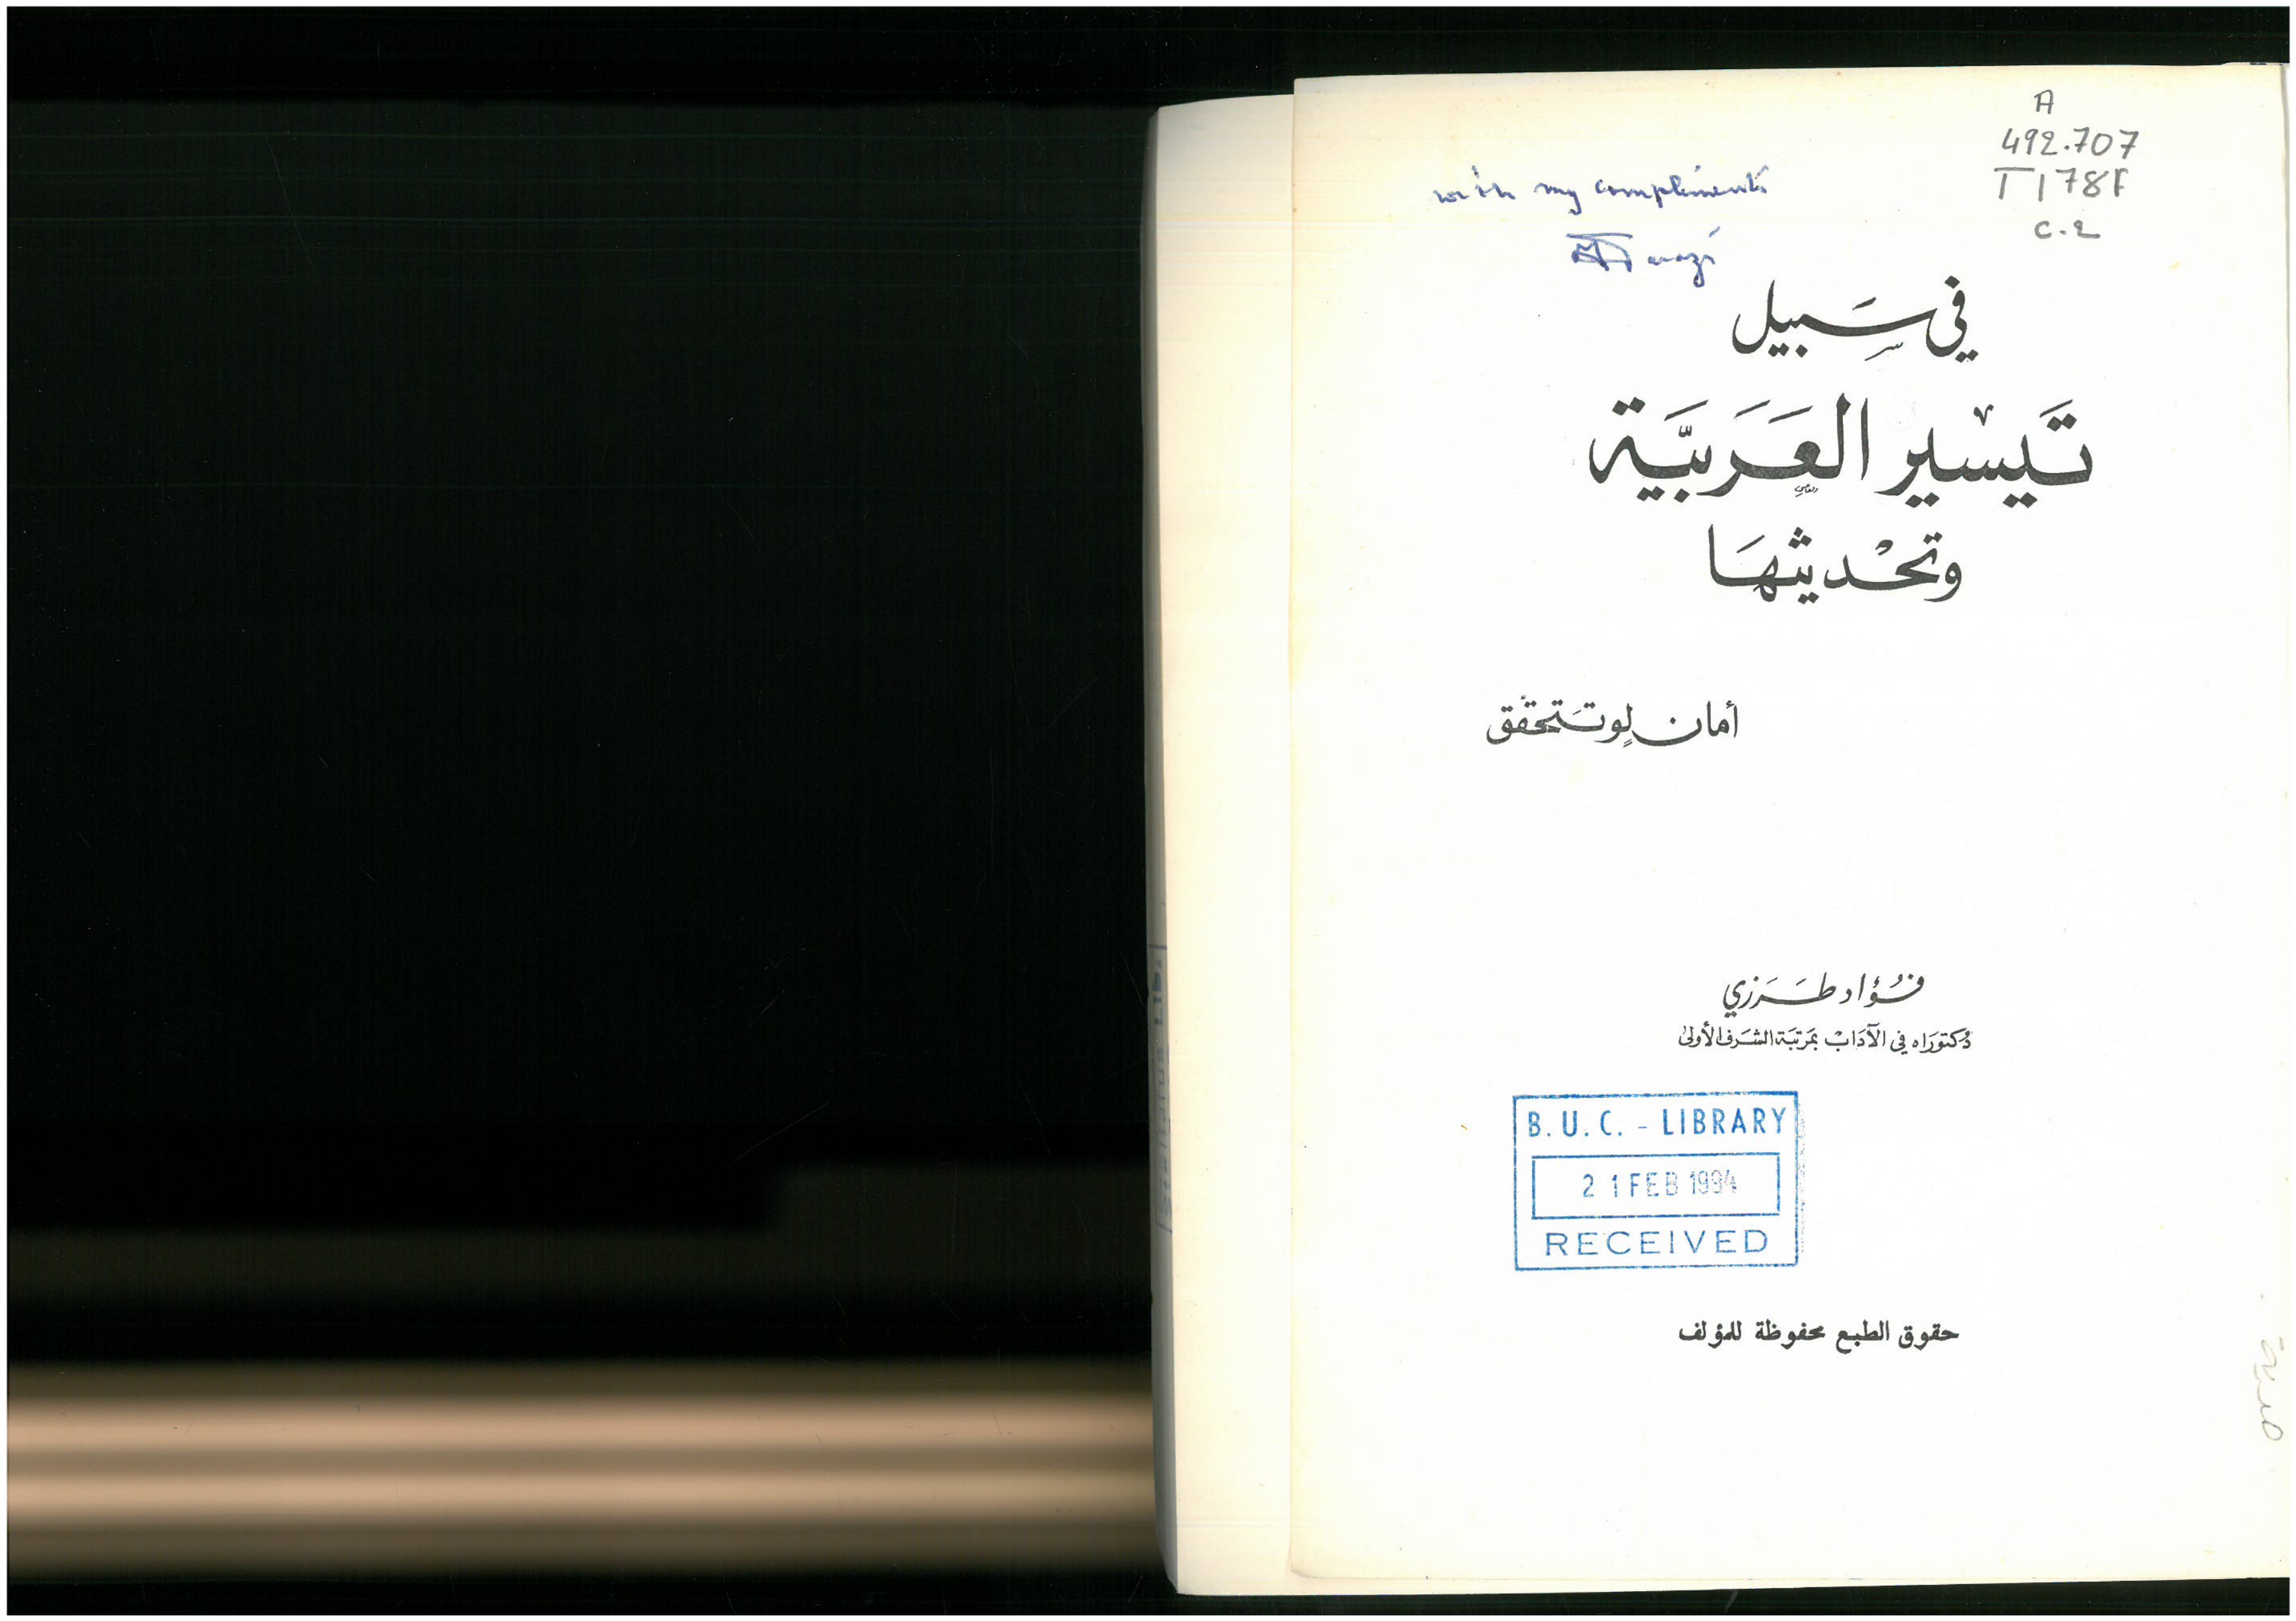 A
492.707
T178f
c.2
with my compliments
في سَبيل
تَيسير العَرَبيَّة
وتحْديثهَا
أمان لو تتحقّق
فؤاد طَرَزي
دكتورَاه في الآدَابْ بمَرتبَة الشرَف الأولىٰ
B. U. C. - LIBRARY
21 FEB 1994
RECEIVED
حقوق الطبع محفوظة للمؤلف